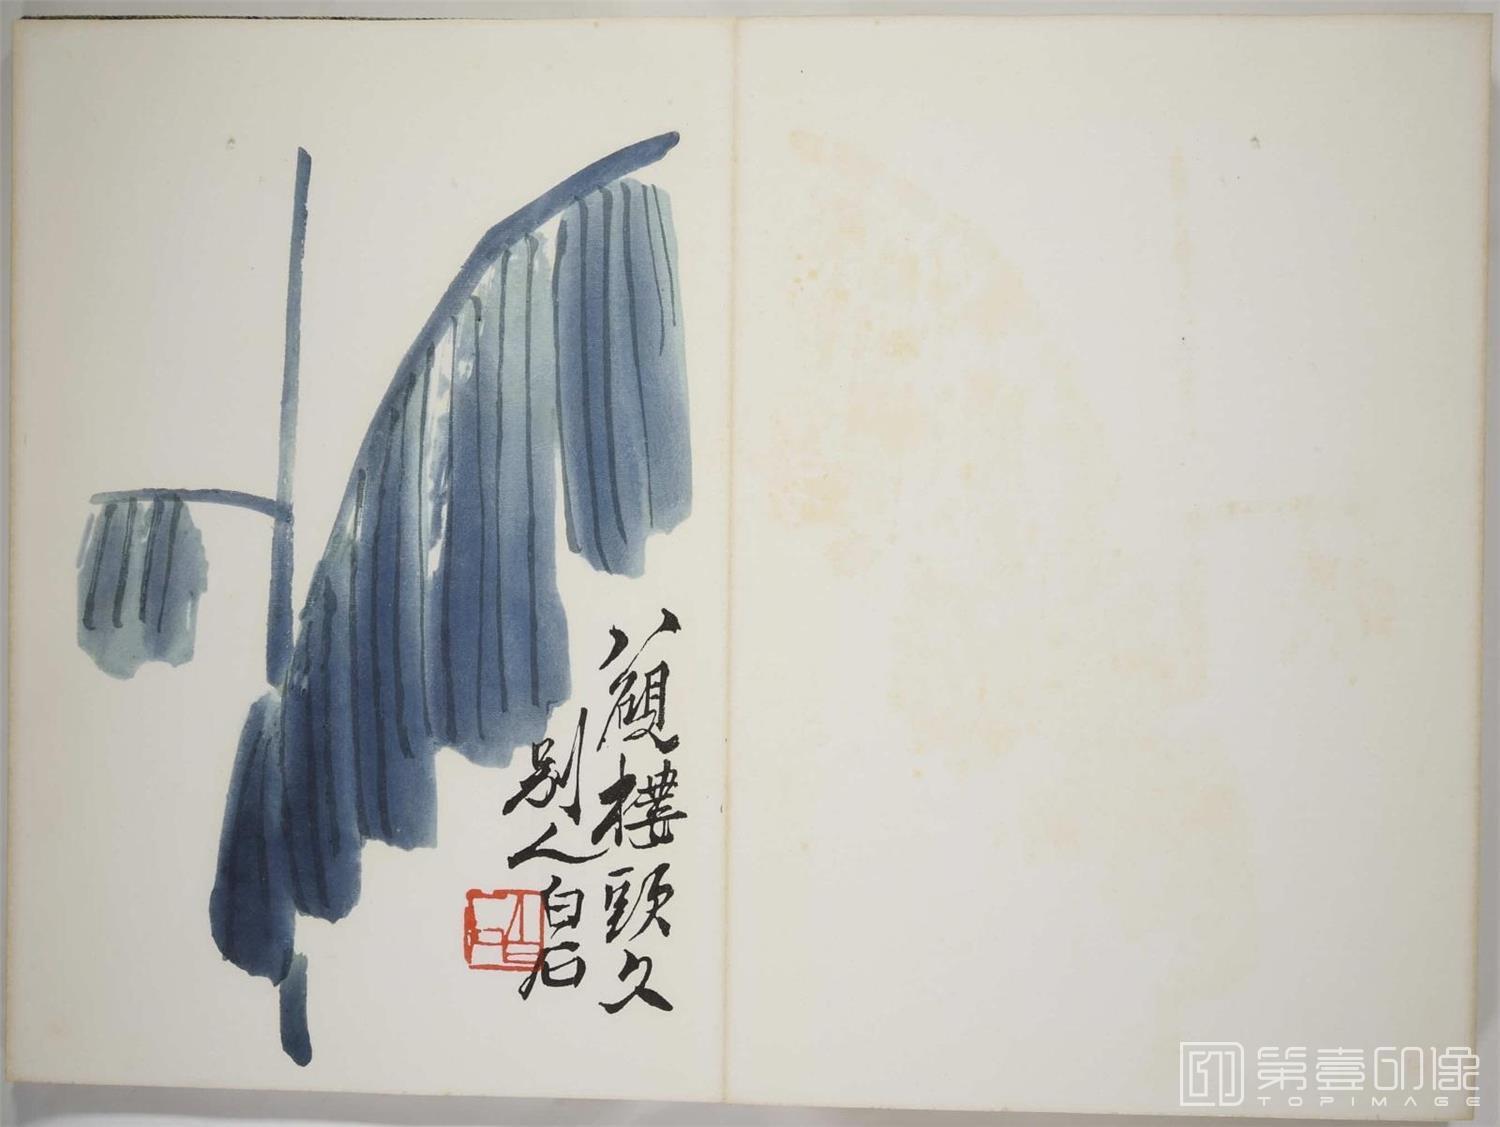 八硯樓頭久
別人白石
白石
第壹印像
TOPIMAGE